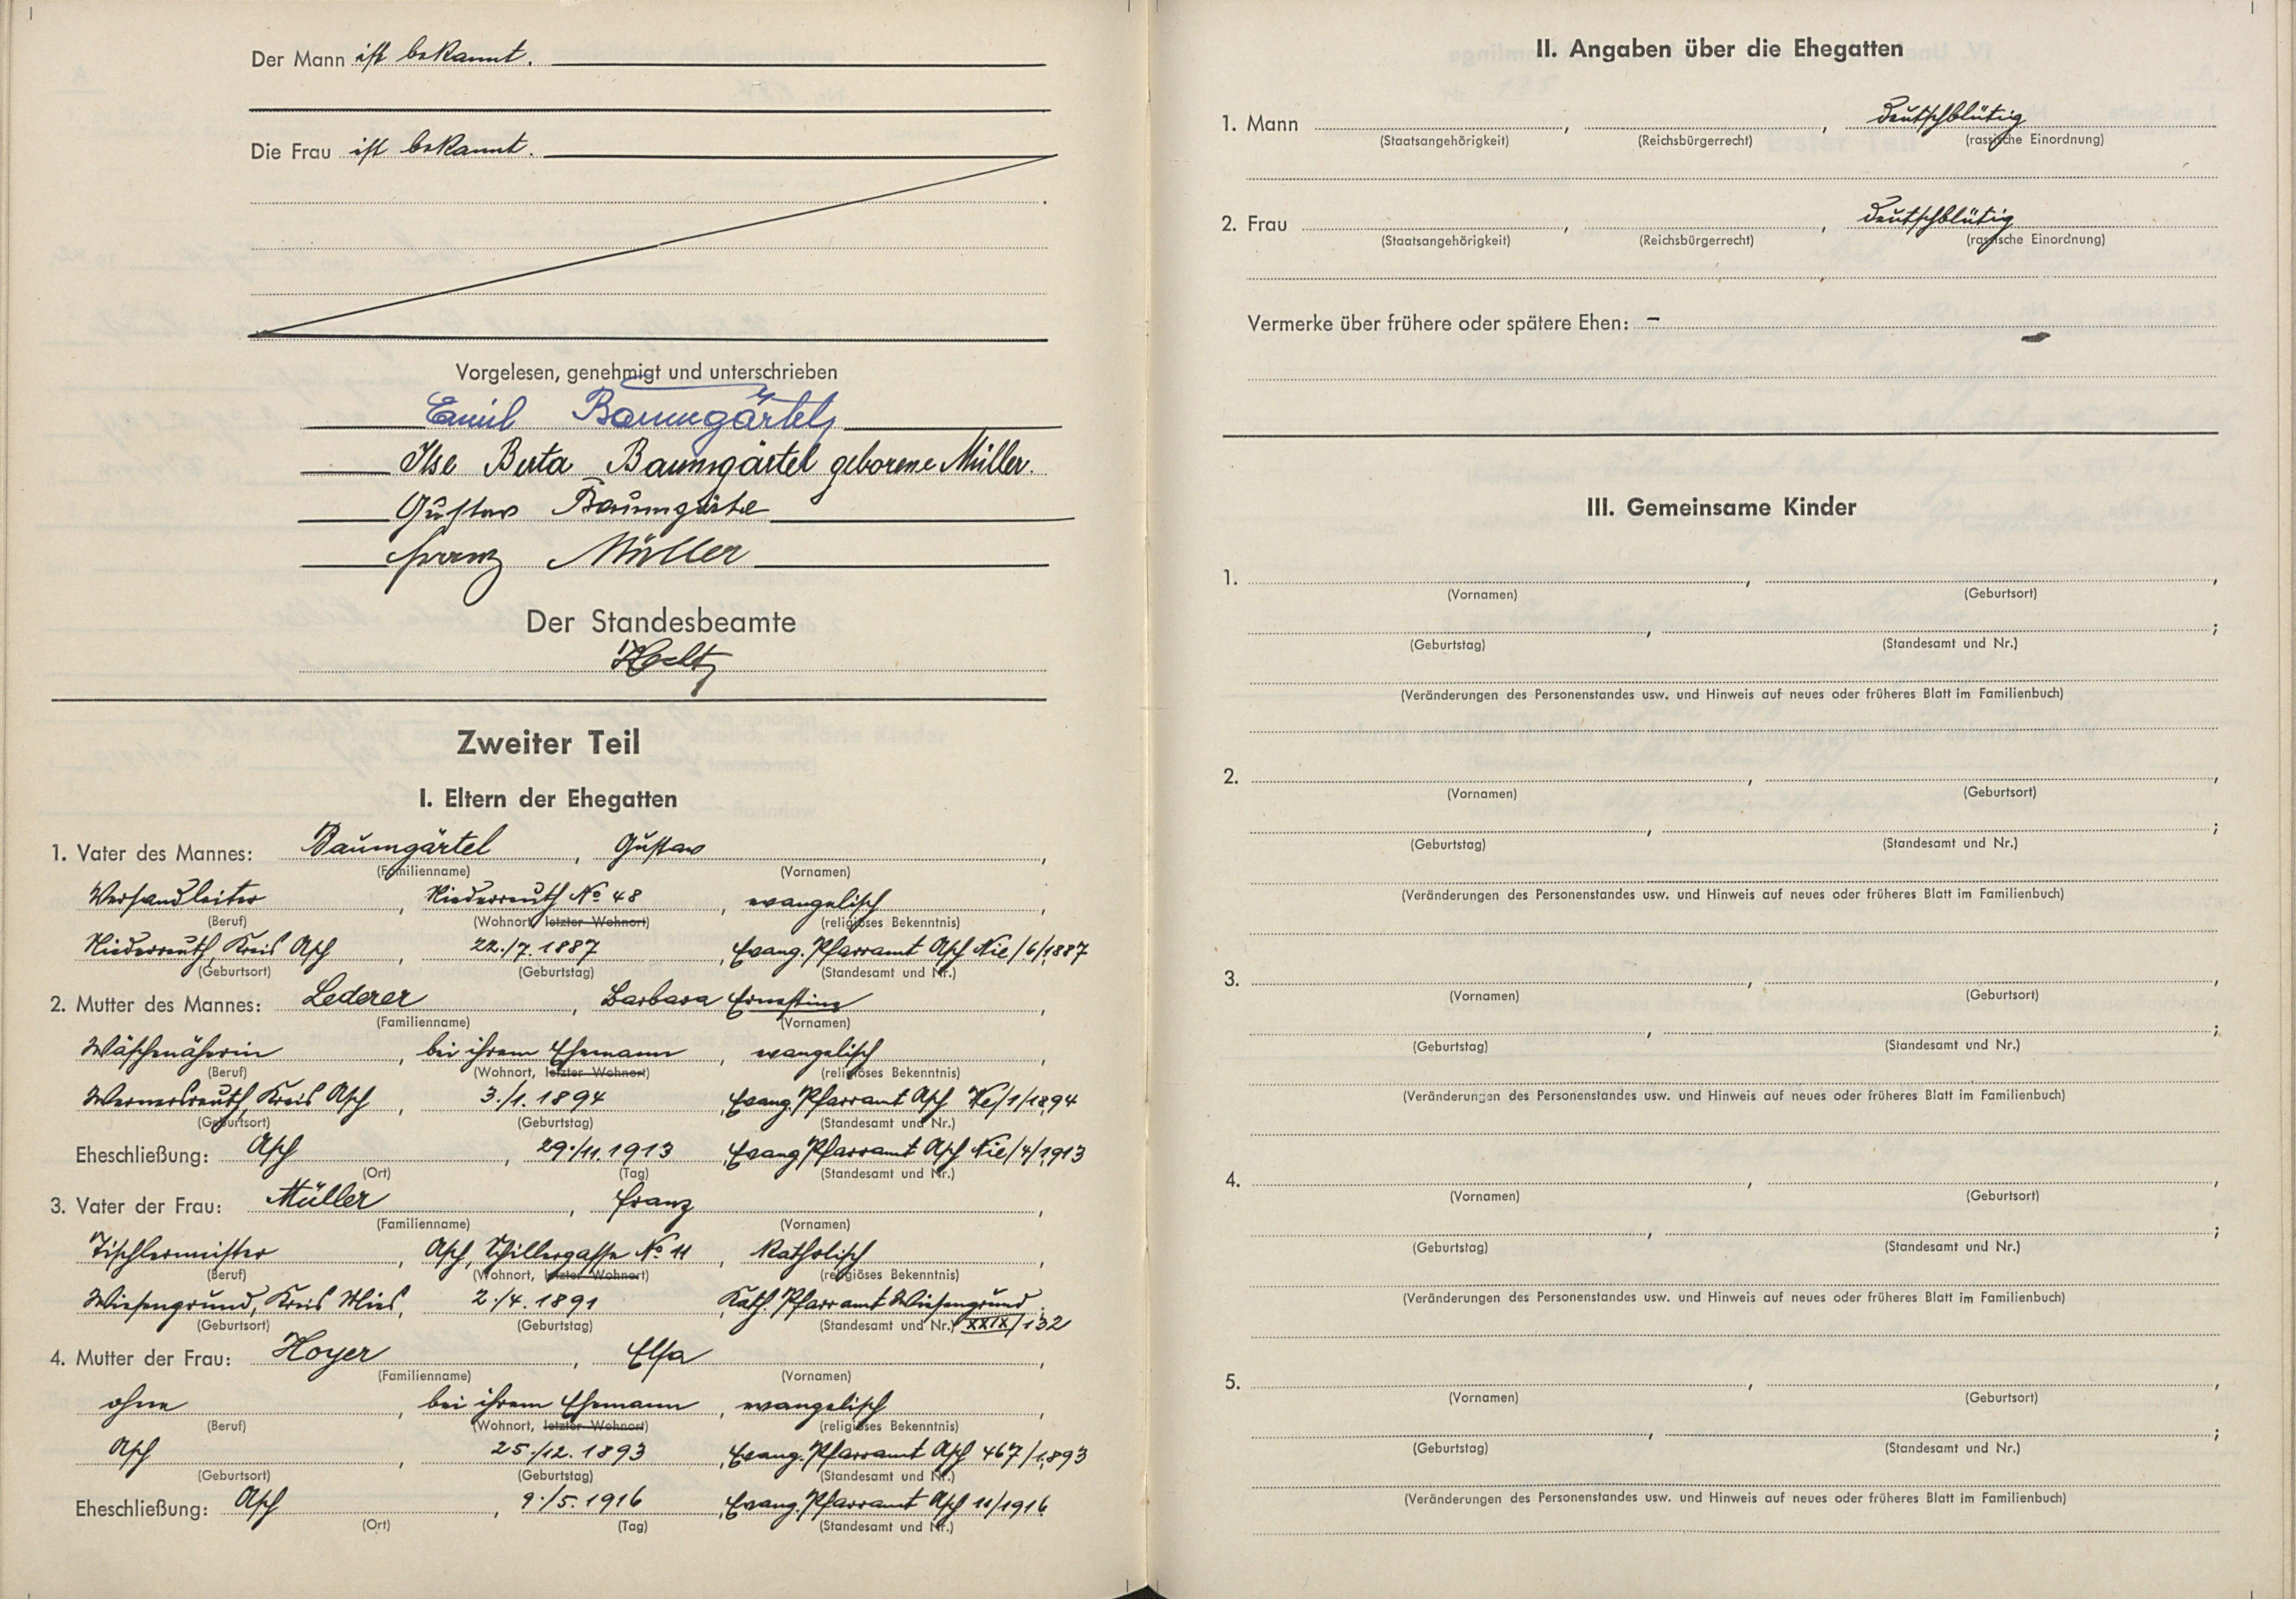 Der Mann ist bekannt.
Die Frau ist bekannt.
Vorgelesen, genehmigt und unterschrieben
Emil Baumgärtel
Ilse Berta Baumgärtel geborene Müller.
Gustav Baumgärtel
Franz Müller
Der Standesbeamte
Zweiter Teil
I. Eltern der Ehegatten
1. Vater des Mannes: Baumgärtel, Gustav,
(Familienname) (Vornamen)
Versandleiter, Niederreuth No 48, evangelisch,
(Beruf) (Wohnort, letzter Wohnort) (religiöses Bekenntnis)
Niederreuth, Kreis Asch, 22./7.1887, Evang. Pfarramt Asch Nie/6/1887
(Geburtsort) (Geburtstag) (Standesamt und Nr.)
2. Mutter des Mannes: Lederer, Barbara Ernestine,
(Familienname) (Vornamen)
Wäschenäherin, bei ihrem Ehemann, evangelisch,
(Beruf) (Wohnort, letzter Wohnort) (religiöses Bekenntnis)
Wernersreuth, Kreis Asch, 3./1.1894, Evang. Pfarramt Asch We/1/1894
(Geburtsort) (Geburtstag) (Standesamt und Nr.)
Eheschließung: Asch, 29./11.1913, Evang. Pfarramt Asch Nie/4/1913
(Ort) (Tag) (Standesamt und Nr.)
3. Vater der Frau: Müller, Franz,
(Familienname) (Vornamen)
Tischlermeister, Asch, Schillergasse No 11, katholisch,
(Beruf) (Wohnort, letzter Wohnort) (religiöses Bekenntnis)
Wiesengrund, Kreis Mies, 2./4.1891 Kath. Pfarramt Wiesengrund
(Geburtsort) (Geburtstag) (Standesamt und Nr.) XXIX/132
4. Mutter der Frau: Hoyer, Elsa,
(Familienname) (Vornamen)
ohne, bei ihrem Ehemann, evangelisch,
(Beruf) (Wohnort, letzter Wohnort) (religiöses Bekenntnis)
Asch, 25./12.1893, Evang. Pfarramt Asch 467/1893
(Geburtsort) (Geburtstag) (Standesamt und Nr.)
Eheschließung: Asch, 9./5.1916, Evang. Pfarramt Asch 11/1916
(Ort) (Tag) (Standesamt und Nr.)
II. Angaben über die Ehegatten
1. Mann , , deutschblütig
(Staatsangehörigkeit) (Reichsbürgerrecht) (rassische Einordnung)
2. Frau , , deutschblütig
(Staatsangehörigkeit) (Reichsbürgerrecht) (rassische Einordnung)
Vermerke über frühere oder spätere Ehen: –
III. Gemeinsame Kinder
1. , ,
(Vornamen) (Geburtsort)
, ;
(Geburtstag) (Standesamt und Nr.)
(Veränderungen des Personenstandes usw. und Hinweis auf neues oder früheres Blatt im Familienbuch)
2. , ,
(Vornamen) (Geburtsort)
, ;
(Geburtstag) (Standesamt und Nr.)
(Veränderungen des Personenstandes usw. und Hinweis auf neues oder früheres Blatt im Familienbuch)
3. , ,
(Vornamen) (Geburtsort)
, ;
(Geburtstag) (Standesamt und Nr.)
(Veränderungen des Personenstandes usw. und Hinweis auf neues oder früheres Blatt im Familienbuch)
4. , ,
(Vornamen) (Geburtsort)
, ;
(Geburtstag) (Standesamt und Nr.)
(Veränderungen des Personenstandes usw. und Hinweis auf neues oder früheres Blatt im Familienbuch)
5. , ,
(Vornamen) (Geburtsort)
, ;
(Geburtstag) (Standesamt und Nr.)
(Veränderungen des Personenstandes usw. und Hinweis auf neues oder früheres Blatt im Familienbuch)